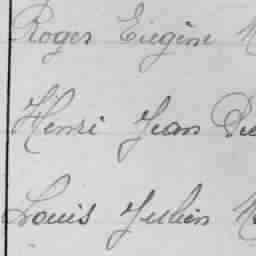 Roger Eugène M
Henri Jean Pie
Louis Julien M